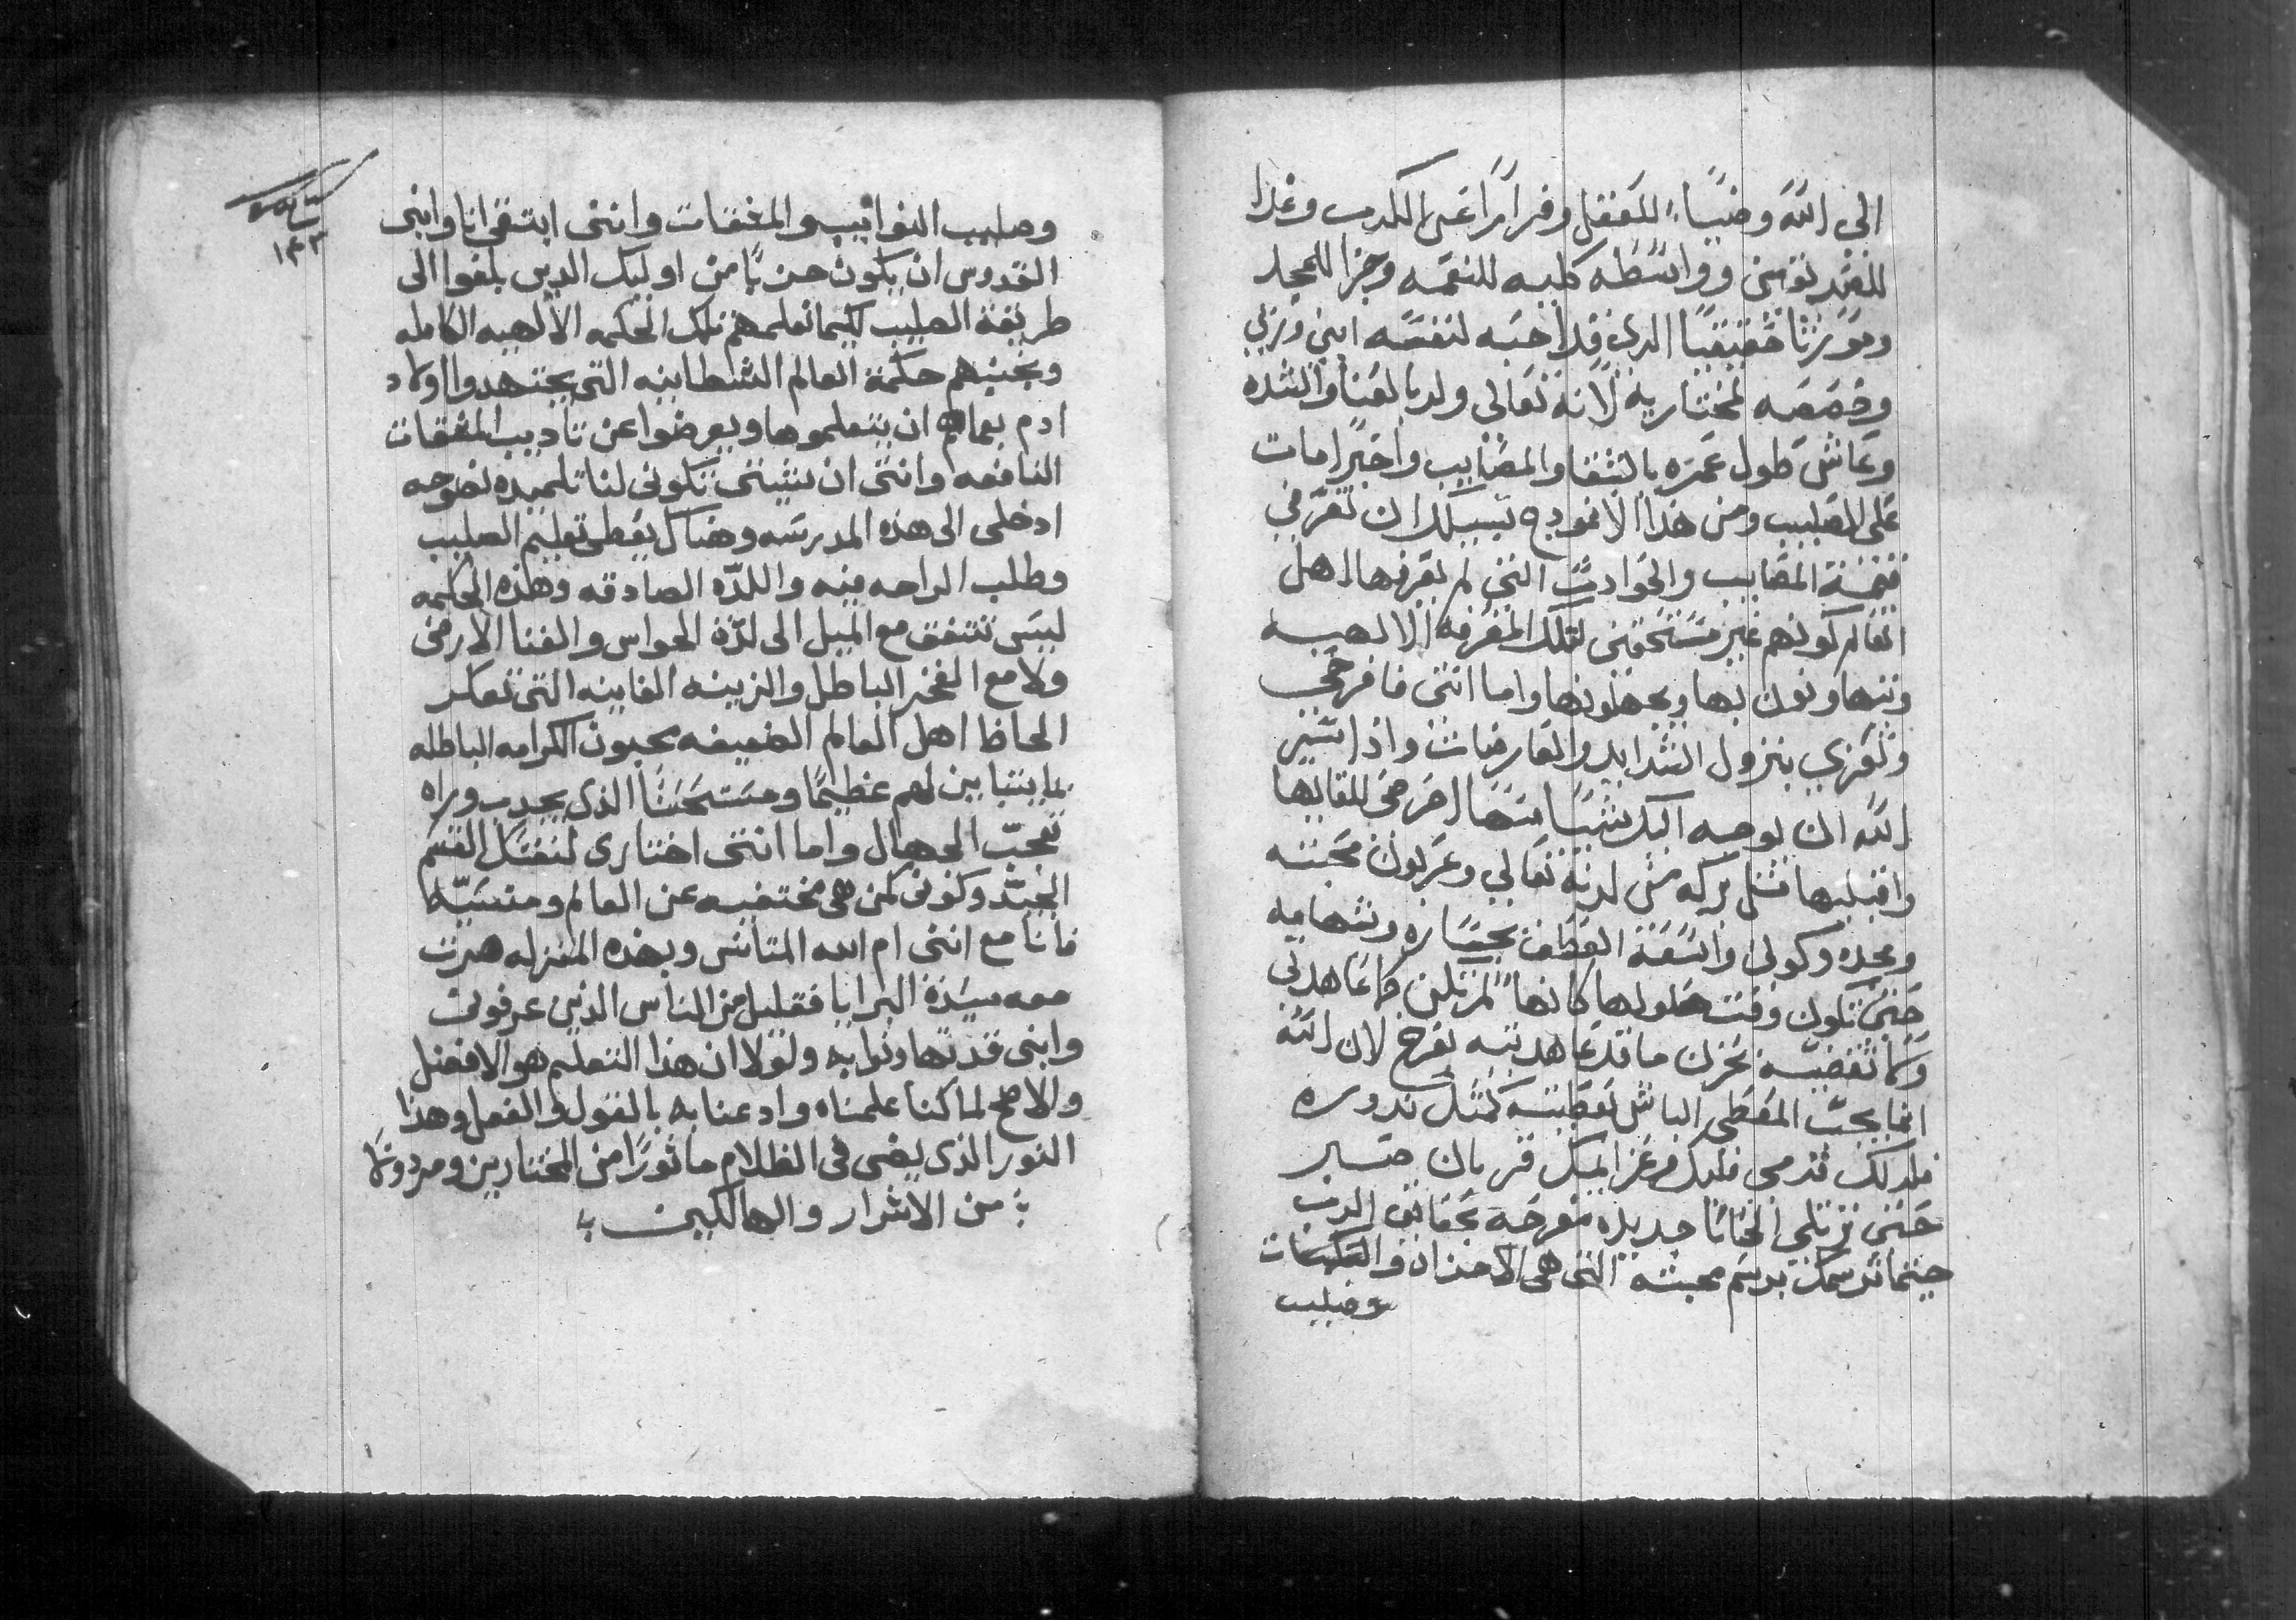 الى الله وضياء للعقل وفرارًا عن الكدب وغدا
للفقد نوسى وواسطه كليه للنعمه وجزا للمجد
وموررثا حقيقيا الدي قد احبه لنفسه ابني وربي
وخصصه لمختاريه لانه تعالى ولد بالعنا والشده
وعاش طول عمره بالشقا والمصايب واخيرا مات
على الصليب ومن هذا الانمودج تسببلك ان تعرفي
قيمة المصايب والحوادث التي لم يعرفها اهل
العالم كونهم غير مستحقين لتلك المعرفه الالهيه
ويتهاونون بها ويجهلونها واما انتى فافرحي
وتعزي بنزول الشدايد والعارضات واذا تشير
الله ان يوجه اليك شيًا منها اخرجى للقايها
واقبليها مثل بركه من لدنه تعالى وعربون محبته
ومجده وكوني واسعة العطف بجساره وشهاميه
حتى تكوني وقت حلولها كانها لم تكن كما عاهدتى
ولا تغضبيه بحزن ما قد عاهدتيه بفرح لان الله
انما يحب المعطى الباش بعطيته كمثل ندوره
فلدلك قدمي قلبك وعزالمك قربان صبر
حتى ترتلي الحانًا جديده مفرحه بحقايق الرب
حينما ترسمك برسم محبته التى هى الاحزان والنكبات
وصليب
١٣٢
وصليب النوايب والمشقات وانني ابتغى انا وابنى
القدوس ان يكون حزبًا من اوليك الدين بلغوا الى
طريقة الصليب كيما نعلمهم تلك الحكمه الالهيه الكامله
ونجنبهم حكمة العالم الشطانيه التى يجتهدوا اولاد
ادم بعماهم ان يتعلموها ويعرضوا عن تاديب المشقات
النافعه وانتى ان شيتى تكونى لنا تلميده نصوحه
ادخلى الى هذه المدرسه وهناك يعطى تعليم الصليب
وطلب الراحه فيه واللدّه الصادقه وهذه الحكمه
ليس تتفق مع الميل الى لدّة الحواس والغنا الارضى
ولا مع الفخر الباطل والزينه الفانيه التى تعكر
الحاظ اهل العالم الضعيفه يحبون الكرامه الباطله
بما يتباين لهم عظيمًا ومستحسنًا الذى يجدب وراه
تعجب الجهال واما انتى اختارى لنفسك القسم
الجيّد وكونى كمن هى مختفيه عن العالم ومنسيّه
فانا مع اننى ام الله المتانس وبهذه المنزله صرت
معه سيّدة البرايا فقليل من الناس الذين عرفونى
وابنى قد تهاونوا به ولولا ان هذا التعليم هو الافضل
والاصح لما كنا علمناه وادعنا به بالقول والفعل وهذا
النور الذى يضى فى الظلام ماثورًا من المختارين ومردولًا
من الاشرار والهالكين